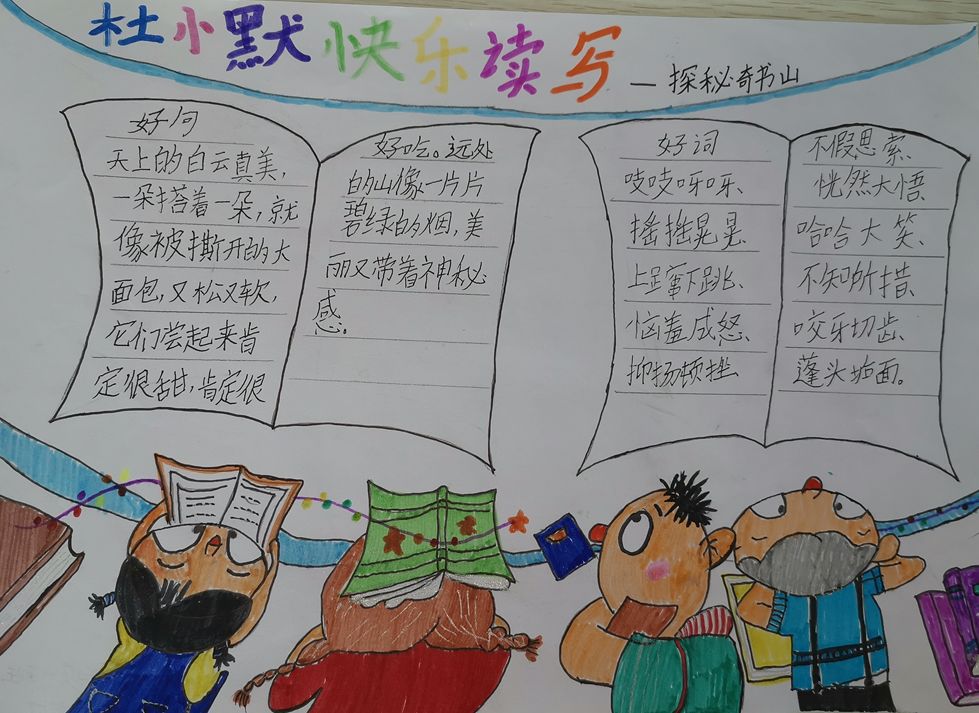 杜小默快乐读写
—探秘奇书山
好句
天上的白云真美，
一朵搭着一朵，就
像被撕开的大
面包，又松又软，
它们尝起来肯
定很甜，肯定很
好吃。远处
的山像一片片
碧绿的烟，美
丽又带着神秘
感。
好词
吱吱呀呀、
摇摇晃晃、
上蹿下跳、
恼羞成怒、
抑扬顿挫
不假思索、
恍然大悟
哈哈大笑、
不知所措、
咬牙切齿、
蓬头垢面。